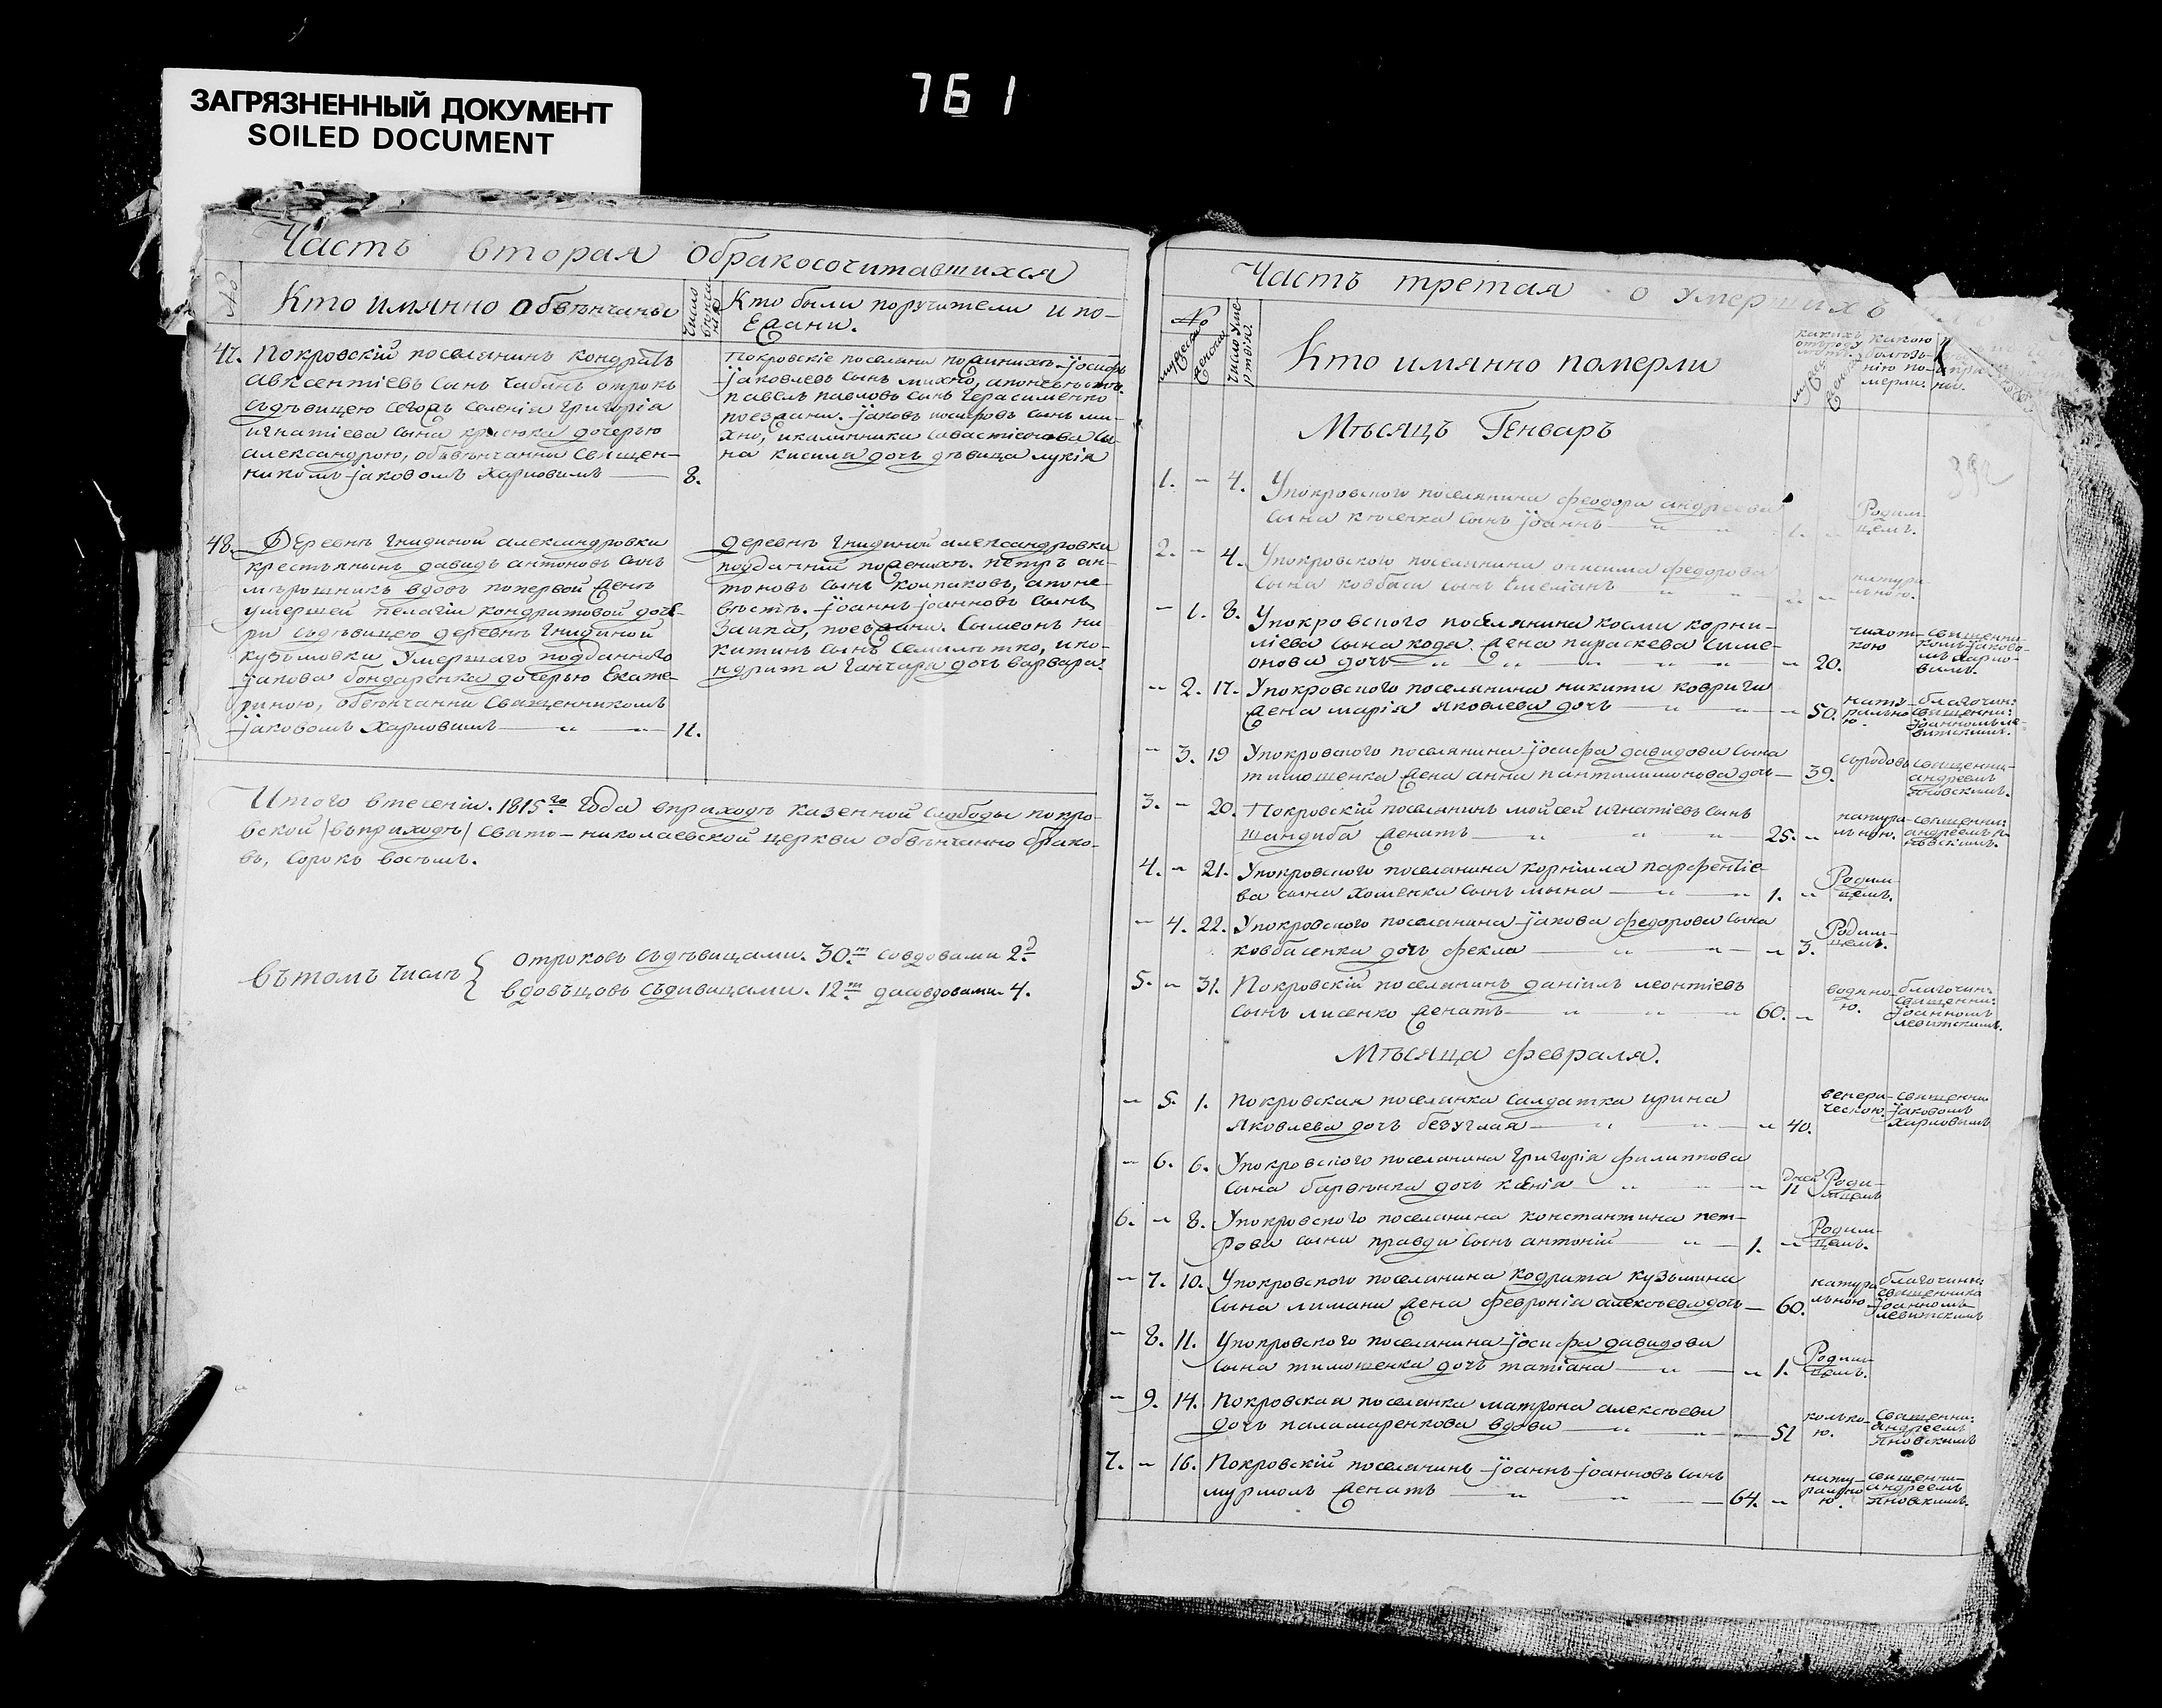 761
ЗАГРЯЗНЕННЫЙ ДОКУМЕНТ
SOILED DOCUMENT
Часть вторая обракосочитавшихся
№
Кто имянно обвѣнчаны
число
Кто были поручители и по-
езжани.
47. Покровскій поселянинъ кондратъ
авксентіевъ сынъ чабанъ отрокъ
съдѣвицею тогожъ селенія григорія
игнатіева сына дочерью
александрою, обвѣнчанни священ-
никомъ јаковомъ харповимъ 8.
покровскіе поселяни пожинихѣ јосифъ
јаковлевъ сынъ михно, апоневѣстѣ
павелъ павловъ сынъ герасименко
поезжани. јаковъ іосифовъ сынъ ми-
хно, икалинника савастіенова сы-
на кисила дочь дѣвица лукія
48. Деревнѣ гнидиной александровки
крестьянинъ давидъ антоновъ сынъ
мѣрошникъ вдовъ попервой женѣ
умершей пелагіи кондритовой доче-
ри съдѣвицею деревнѣ гнидиной
кузьмовки умершаго подданного
јакова бондаренка дочерью Екате-
риною, обвѣнчанни священникомъ
јаковомъ харповимъ 11.
деревнѣ гнидиной александровки
подданній пожинихѣ. петръ ан-
тоновъ сынъ колпаковъ, апоне-
вѣстѣ. јоаннъ јоанновъ сынъ
заика, поезжани. Сымеонъ ни
китинъ сынъ семилѣтко, ико-
ндрата ганчара дочь варвара.
Итого втеченіи. 1815го года вприходѣ казенной слободы покро-
вской /въприходѣ/ свято-николаевской церкви обвѣнчанно брако-
въ, сорокъ восѣмъ.
вътомъ числѣ { отроковъ съдѣвицами. 30.ть совдовами 2.
вдовъцовъ съдивицами. 12.ть дасовдовами. 4.
Часть третая о умершихъ
№
мужеска
женска
число уме
ртвія.
Кто имянно померли
какихъ
отъроду
лѣтъ.
какою
болѣзь-
нію по-
мерли.
Мѣсяцъ Генваръ
392
1. – 4. Упокровского поселянина феодора андреева
сына сынъ јоаннъ 1. – Родим-
цемъ.
2. – 4. Упокровского поселянина онисима федорова
сына ковбаси сынъ Емеліанъ 2. – натура
льною.
– 1. 8. Упокровского поселянина косми корни-
ліева сына кода жена параскева симе-
онова дочь – 20. чихот-
кою священни-
комъ јаково-
мъ харпо-
вимъ.
– 2. 17. Упокровского поселянина никити ковриги
жена марія яковлева дочь – 50. нату-
рально
ю. благочин:
священни:
јоанномъ ле-
витскимъ.
– 3. 19 Упокровского поселянина јосифа давидова сына
тимошенка жена анна пантилимонова дочь – 39. съродовъ священни-
андреемъ
яновскимъ.
3. – 20. Покровскій поселянинъ мойсей игнатіевъ сынъ
шандиба женатъ 25. – натура-
льною. священни:
андреемъ я-
новскимъ.
4. – 21. Упокровского поселянина корнила парфентіе-
ва сына хоменка сынъ мына 1. – Родим-
цемъ.
– 4. 22. Упокровского поселянина јакова федорова сына
ковбасенка дочь фекла – 3. Родим-
цемъ.
5. – 31. Покровскій поселянинъ даніилъ леонтіевъ
сынъ лисенко женатъ 60. – водяно-
ю. благочин:
священни:
јоанномъ
левитскимъ.
Мѣсяца февраля.
– 5. 1. Покровская поселянка салдатка ирина
яковлева дочь безуглая – 40. венери-
ческою. священни
јаковомъ
харповымъ
– 6. 6. Упокровского поселянина григорія филиппова
сына дочь ксенія – дней
11 Роди-
мцемъ
6. – 8. Упокровского поселянина константина пет-
рова сына правди сынъ антоній 1. – Родим-
цемъ.
– 7. 10. Упокровского поселянина кодрата кузьмина
сына лимани жена февронія алексѣева дочь – 60. натура
льною благочинн:
священника
јоанномъ
левитскимъ
– 8. 11. Упокровского поселянина јосифа давидова
сына тимошенка дочь татіана – 1. Родим-
цемъ.
– 9. 14. Покровская поселянка матрона алексѣева
дочь паламаренкова вдова – 51 колько-
ю. священни:
андреемъ
яновскимъ
7. – 16. Покровскій поселянинъ јоаннъ јоанновъ сынъ
муршолъ женатъ 64. – нату-
рально
ю. священни-
андреемъ
яновскимъ.